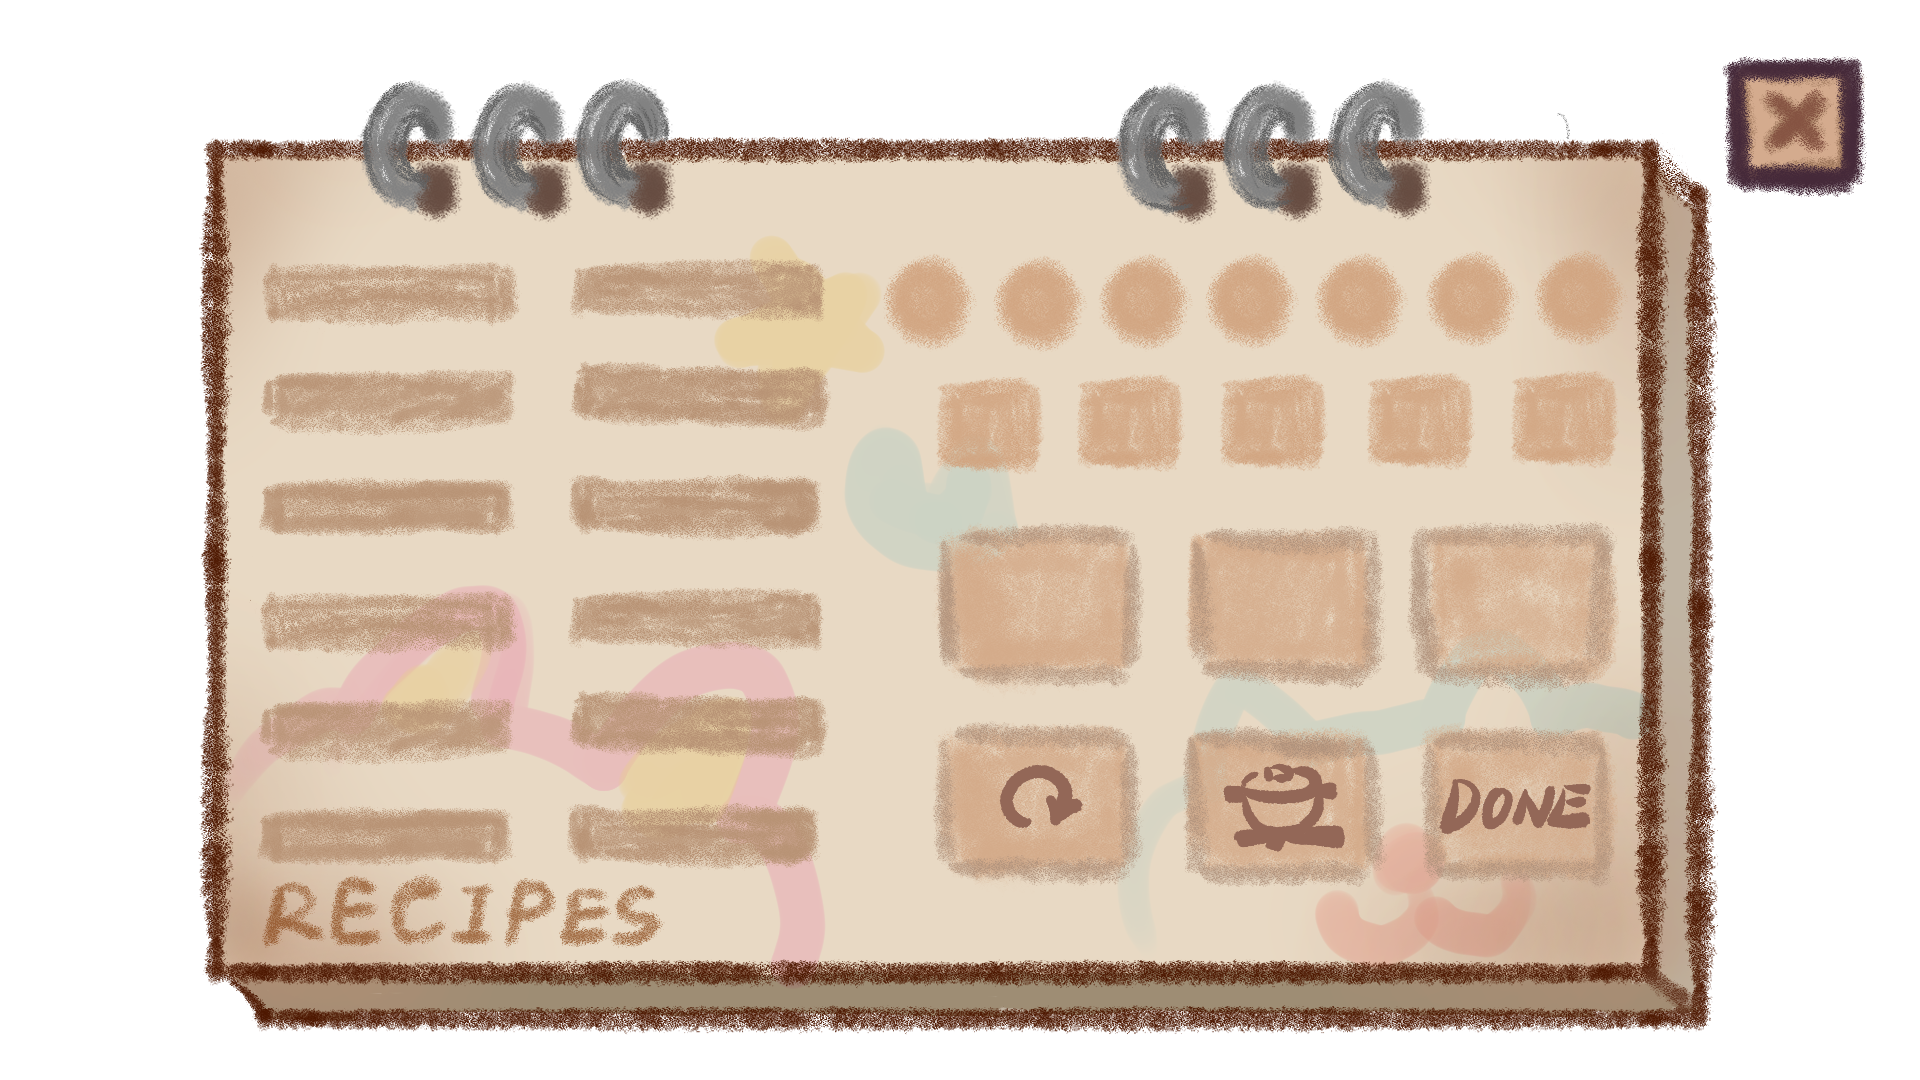 DONE
RECIPES